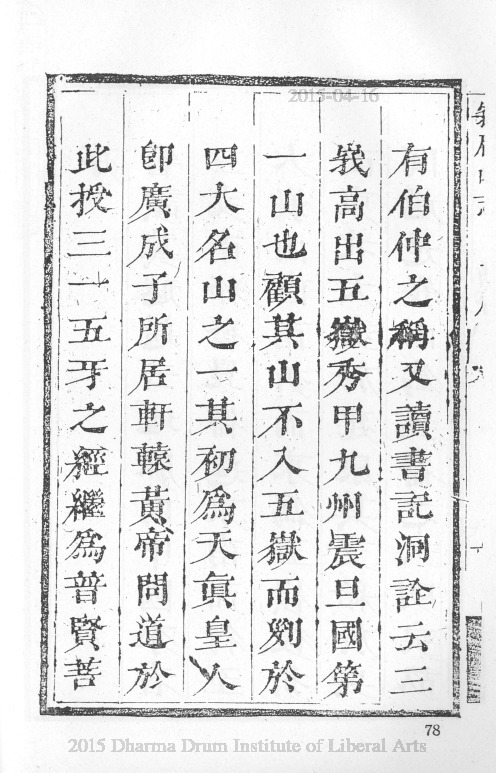 2015-04-16
有伯仲之稱又讀書記洞詮云三
峩高出五嶽秀甲九州震旦國第
一山也顧其山不入五嶽而列於
四大名山之一其初爲天眞皇人
卽廣成子所居軒轅黃帝問道於
此授三一五牙之經繼爲普賢菩
78
2015 Dharma Drum Institute of Liberal Arts